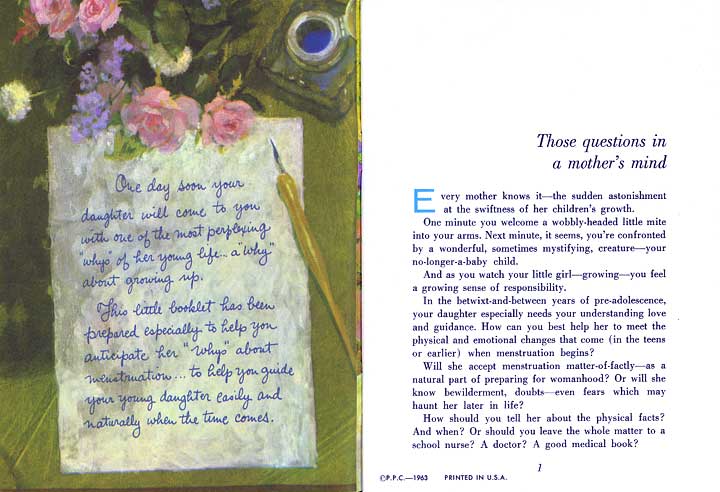 One day soon your
daughter will come to you
with one of the most perplexing
"whys" of her young life... a "Why"
about growing up.
This little booklet has been
prepared especially to help you
anticipate her "Whys" about
menstruation... to help you guide
your young daughter easily and
naturally when the time comes.
Those questions in
a mother's mind
Every mother knows it—the sudden astonishment
at the swiftness of her children's growth.
One minute you welcome a wobbly-headed little mite
into your arms. Next minute, it seems, you're confronted
by a wonderful, sometimes mystifying, creature—your
no-longer-a-baby child.
And as you watch your little girl—growing—you feel
a growing sense of responsibility.
In the betwixt-and-between years of pre-adolescence,
your daughter especially needs your understanding love
and guidance. How can you best help her to meet the
physical and emotional changes that come (in the teens
or earlier) when menstruation begins?
Will she accept menstruation matter-of-factly—as a
natural part of preparing for womanhood? Or will she
know bewilderment, doubts—even fears which may
haunt her later in life?
How should you tell her about the physical facts?
And when? Or should you leave the whole matter to a
school nurse? A doctor? A good medical book?
1
©P.P.C.—1963 PRINTED IN U.S.A.